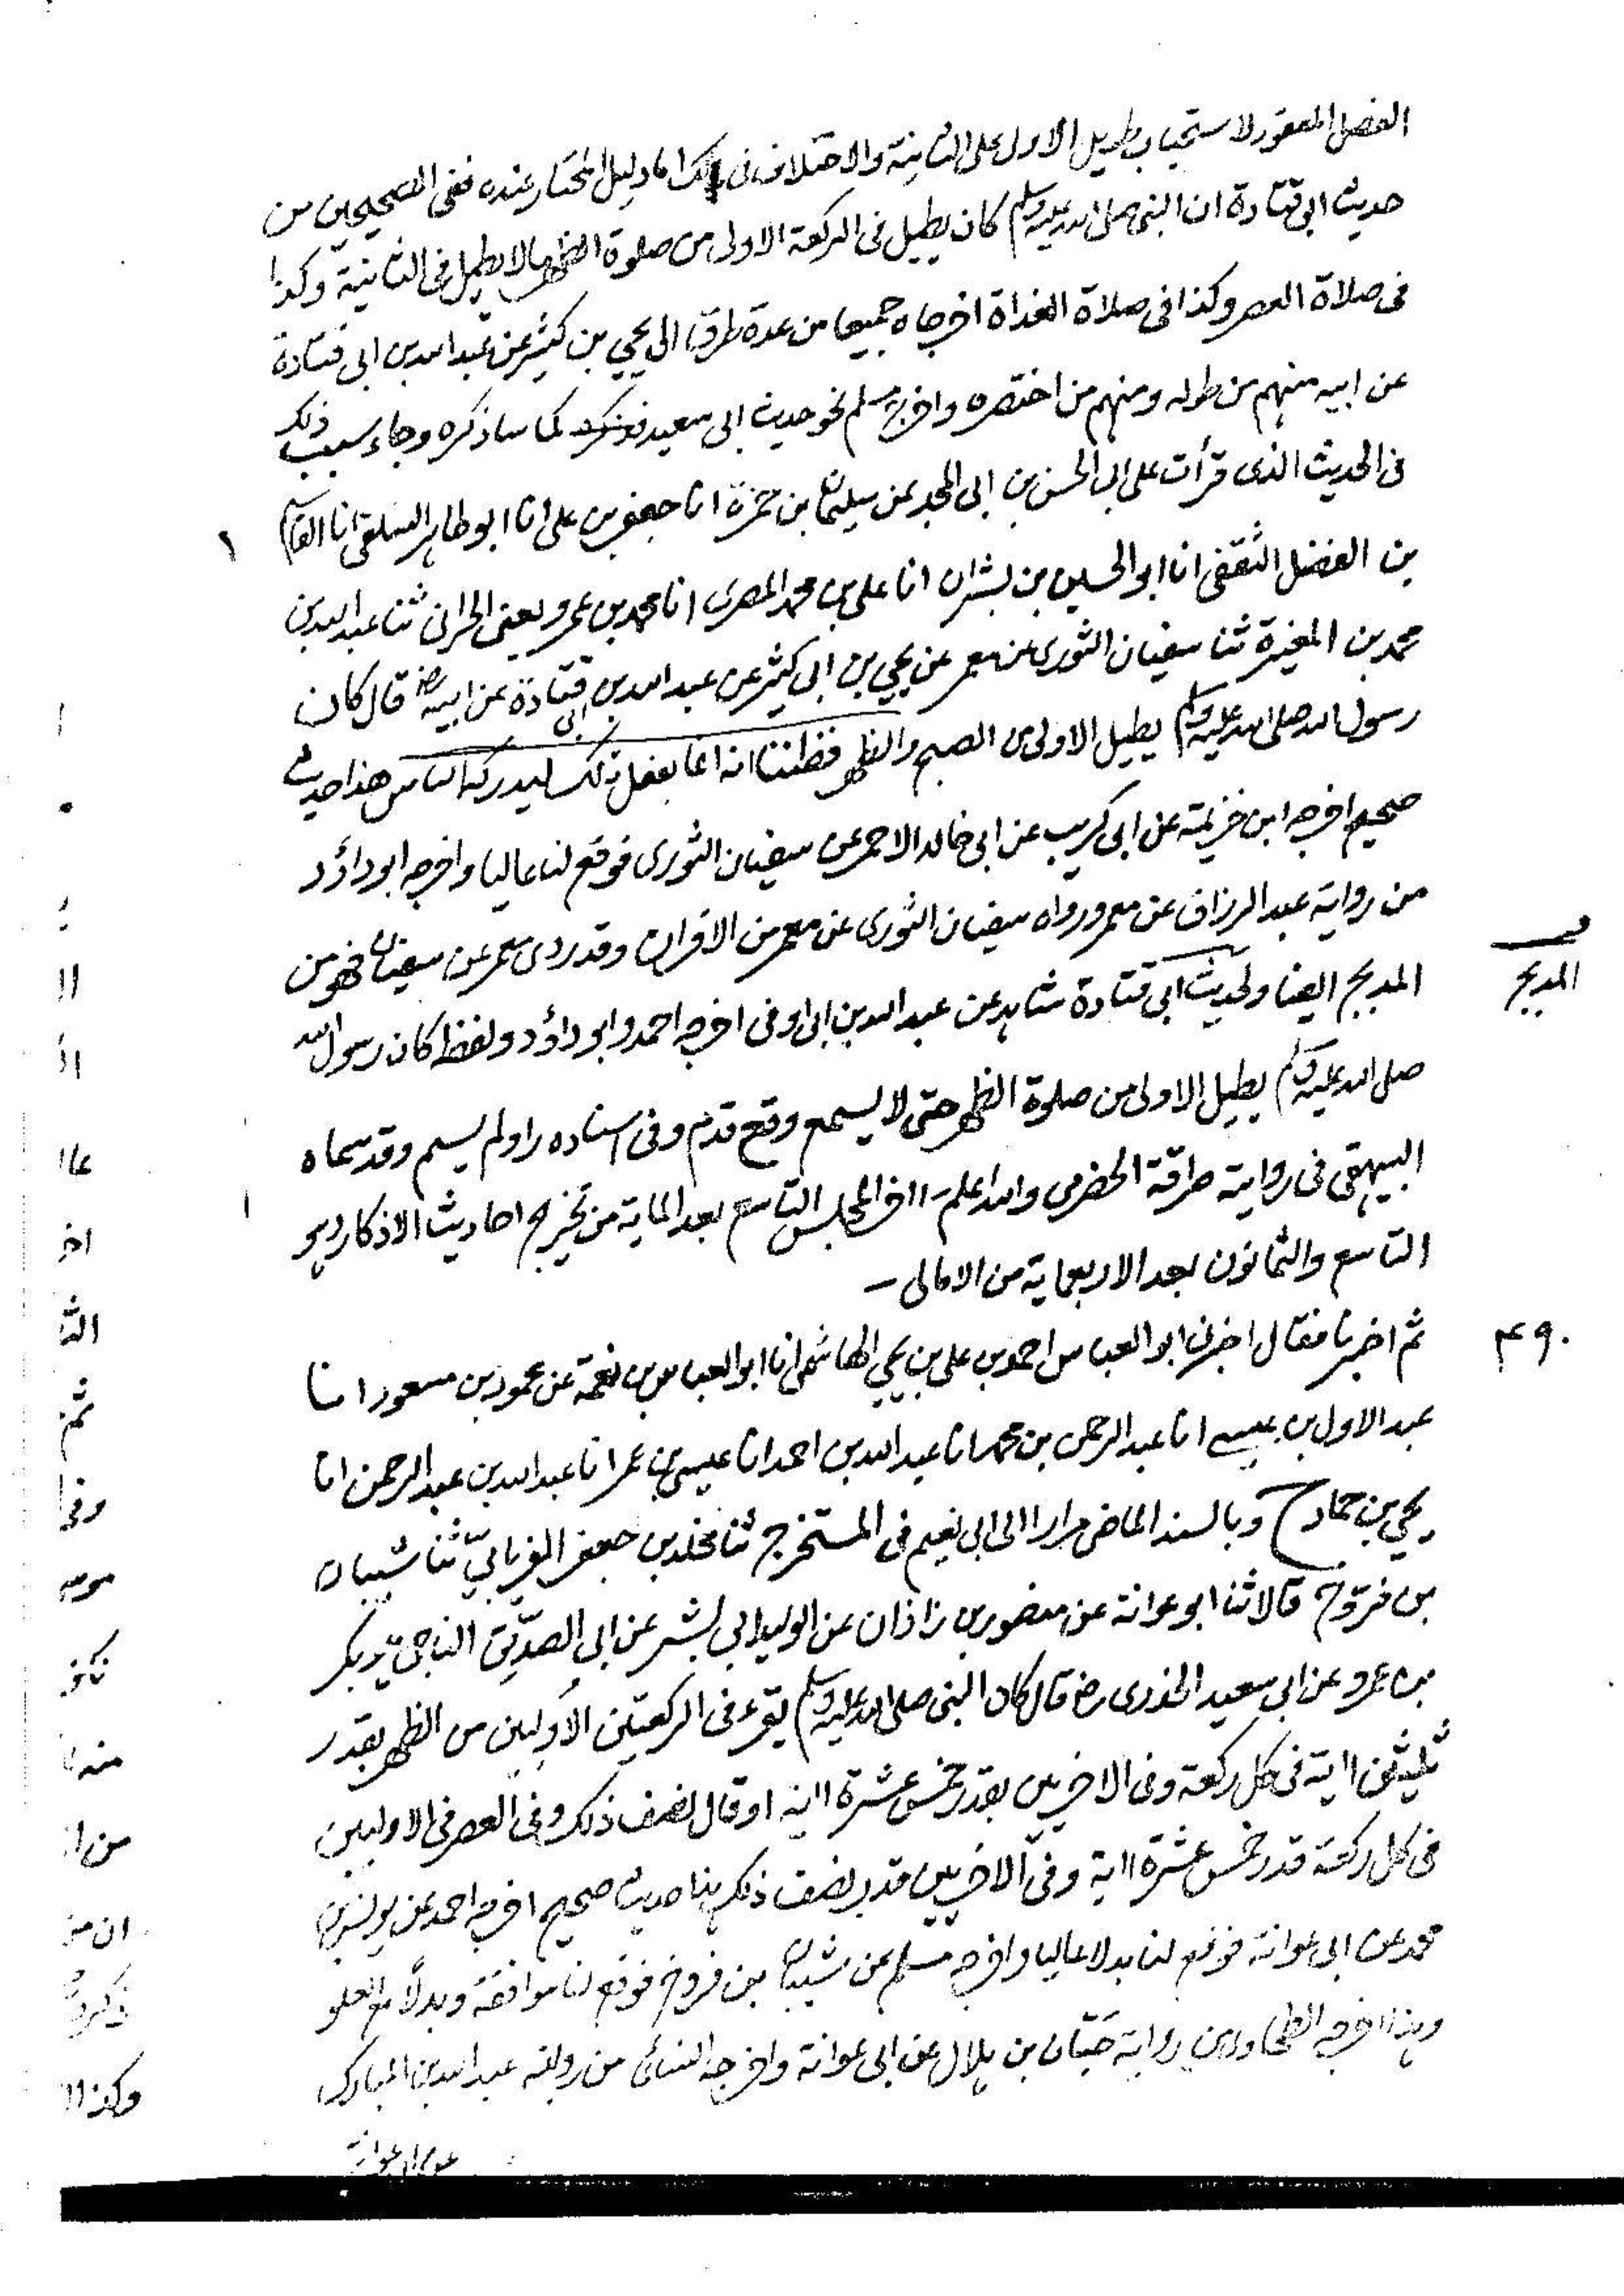 الفصل المعقود لاستحباب تطويل الاولى على الثانية والاختلاف فى ذلك اما دليل المختار عنده ففى الصحيحين من
حديث ابى قتادة ان النبى صلى الله عليه وسلم كان يطيل فى الركعة الاولى من صلوة الظهر ما لا يطيل فى الثانية وكذا
فى صلاة العصر وكذا فى صلاة الغداة اخرجاه جميعا من عدة طرق الى يحيى بن كثير عن عبد الله بن ابى قتادة
عن ابيه منهم من طوله ومنهم من اختصره واخرج مسلم نحو حديث ابى سعيد كما ساذكره وجاء سبب ذلك
فى الحديث الذى قرأت على ابى الحسن بن ابى المجد عن سليمان بن حمزة انا جعفر بن على انا ابو طاهر السلفى انا القاسم
بن الفضل الثقفى انا ابو الحسين بن بشران انا على بن محمد المصرى انا محمد بن عمرو يعنى الحرانى ثنا عبد الله بن
محمد بن المغيرة ثنا سفيان الثورى عن معمر عن يحيى بن ابى كثير عن عبد الله بن ابى قتادة عن ابيه رض قال كان
رسول الله صلى الله عليه وسلم يطيل الاولى من الصبح والظهر فظننا انه انما يفعل ذلك ليدركه الناس هذا حديث
صحيح اخرجه ابن خزيمة عن ابى كريب عن ابى خالد الاحمر عن سفيان الثورى فوقع لنا عاليا واخرجه ابو داؤد
من رواية عبد الرزاق عن معمر ورواه سفيان الثورى عن معمر من الاقران وقد روى معمر عن سفيان فهو من
المدبج
المدبج ايضا ولحديث ابى قتادة شاهد عن عبد الله بن ابى اوفى اخرجه احمد وابو داؤد ولفظه كان رسول الله
صلى الله عليه وسلم يطيل الاولى من صلوة الظهر حتى لا يسمع وقع قدم وفى اسناده راو لم يسم وقد سماه
البيهقى فى رواية طرفة الحضرمى والله اعلم اخر المجلس التاسع بعد المایة من تخريج احاديث الاذكار وهو
التاسع والثمانون بعد الاربعماية من الامالى -
۴۹۰
ثم اخبرنا فقال اخبرنى ابو العباس احمد بن على بن يحيى الهاشمى انا ابو العباس بن نعمة عن محمود بن مسعود انا
عبد الاول بن عيسى انا عبد الرحمن بن محمد انا عبد الله بن احمد انا عيسى بن عمر انا عبد الله بن عبد الرحمن انا
يحيى بن حماد ح وبالسند الماضى مرارا الى ابى نعيم فى المستخرج ثنا مخلد بن جعفر الفريابى ثنا شيبان
بن فرّوخ قالا ثنا ابو عوانة عن منصور بن زاذان عن الوليد ابى بشر عن ابى الصدّيق الناجى بكر
بن عمرو عن ابى سعيد الخدرى رض قال كان النبى صلى الله عليه وسلم يقرء فى الركعتين الاوليين من الظهر بقدر
ثلثين اية فى كل ركعة وفى الاخريين بقدر خمس عشرة اية او قال نصف ذلك وفى العصر فى الاوليين
فى كل ركعة قدر خمس عشرة اية وفى الاخريين قدر نصف ذلك هذا حديث صحيح اخرجه احمد عن يونس بن
محمد عن ابى عوانة فوقع لنا بدلا عاليا واخرجه مسلم عن شيبان بن فروخ فوقع لنا موافقة وبدلًا مع العلو
وهذا اخرجه الطحاوى من رواية حَبّان بن هلال عن ابى عوانة واخرجه النسائى من رواية عبد الله بن المبارك
عن ابى عوانة